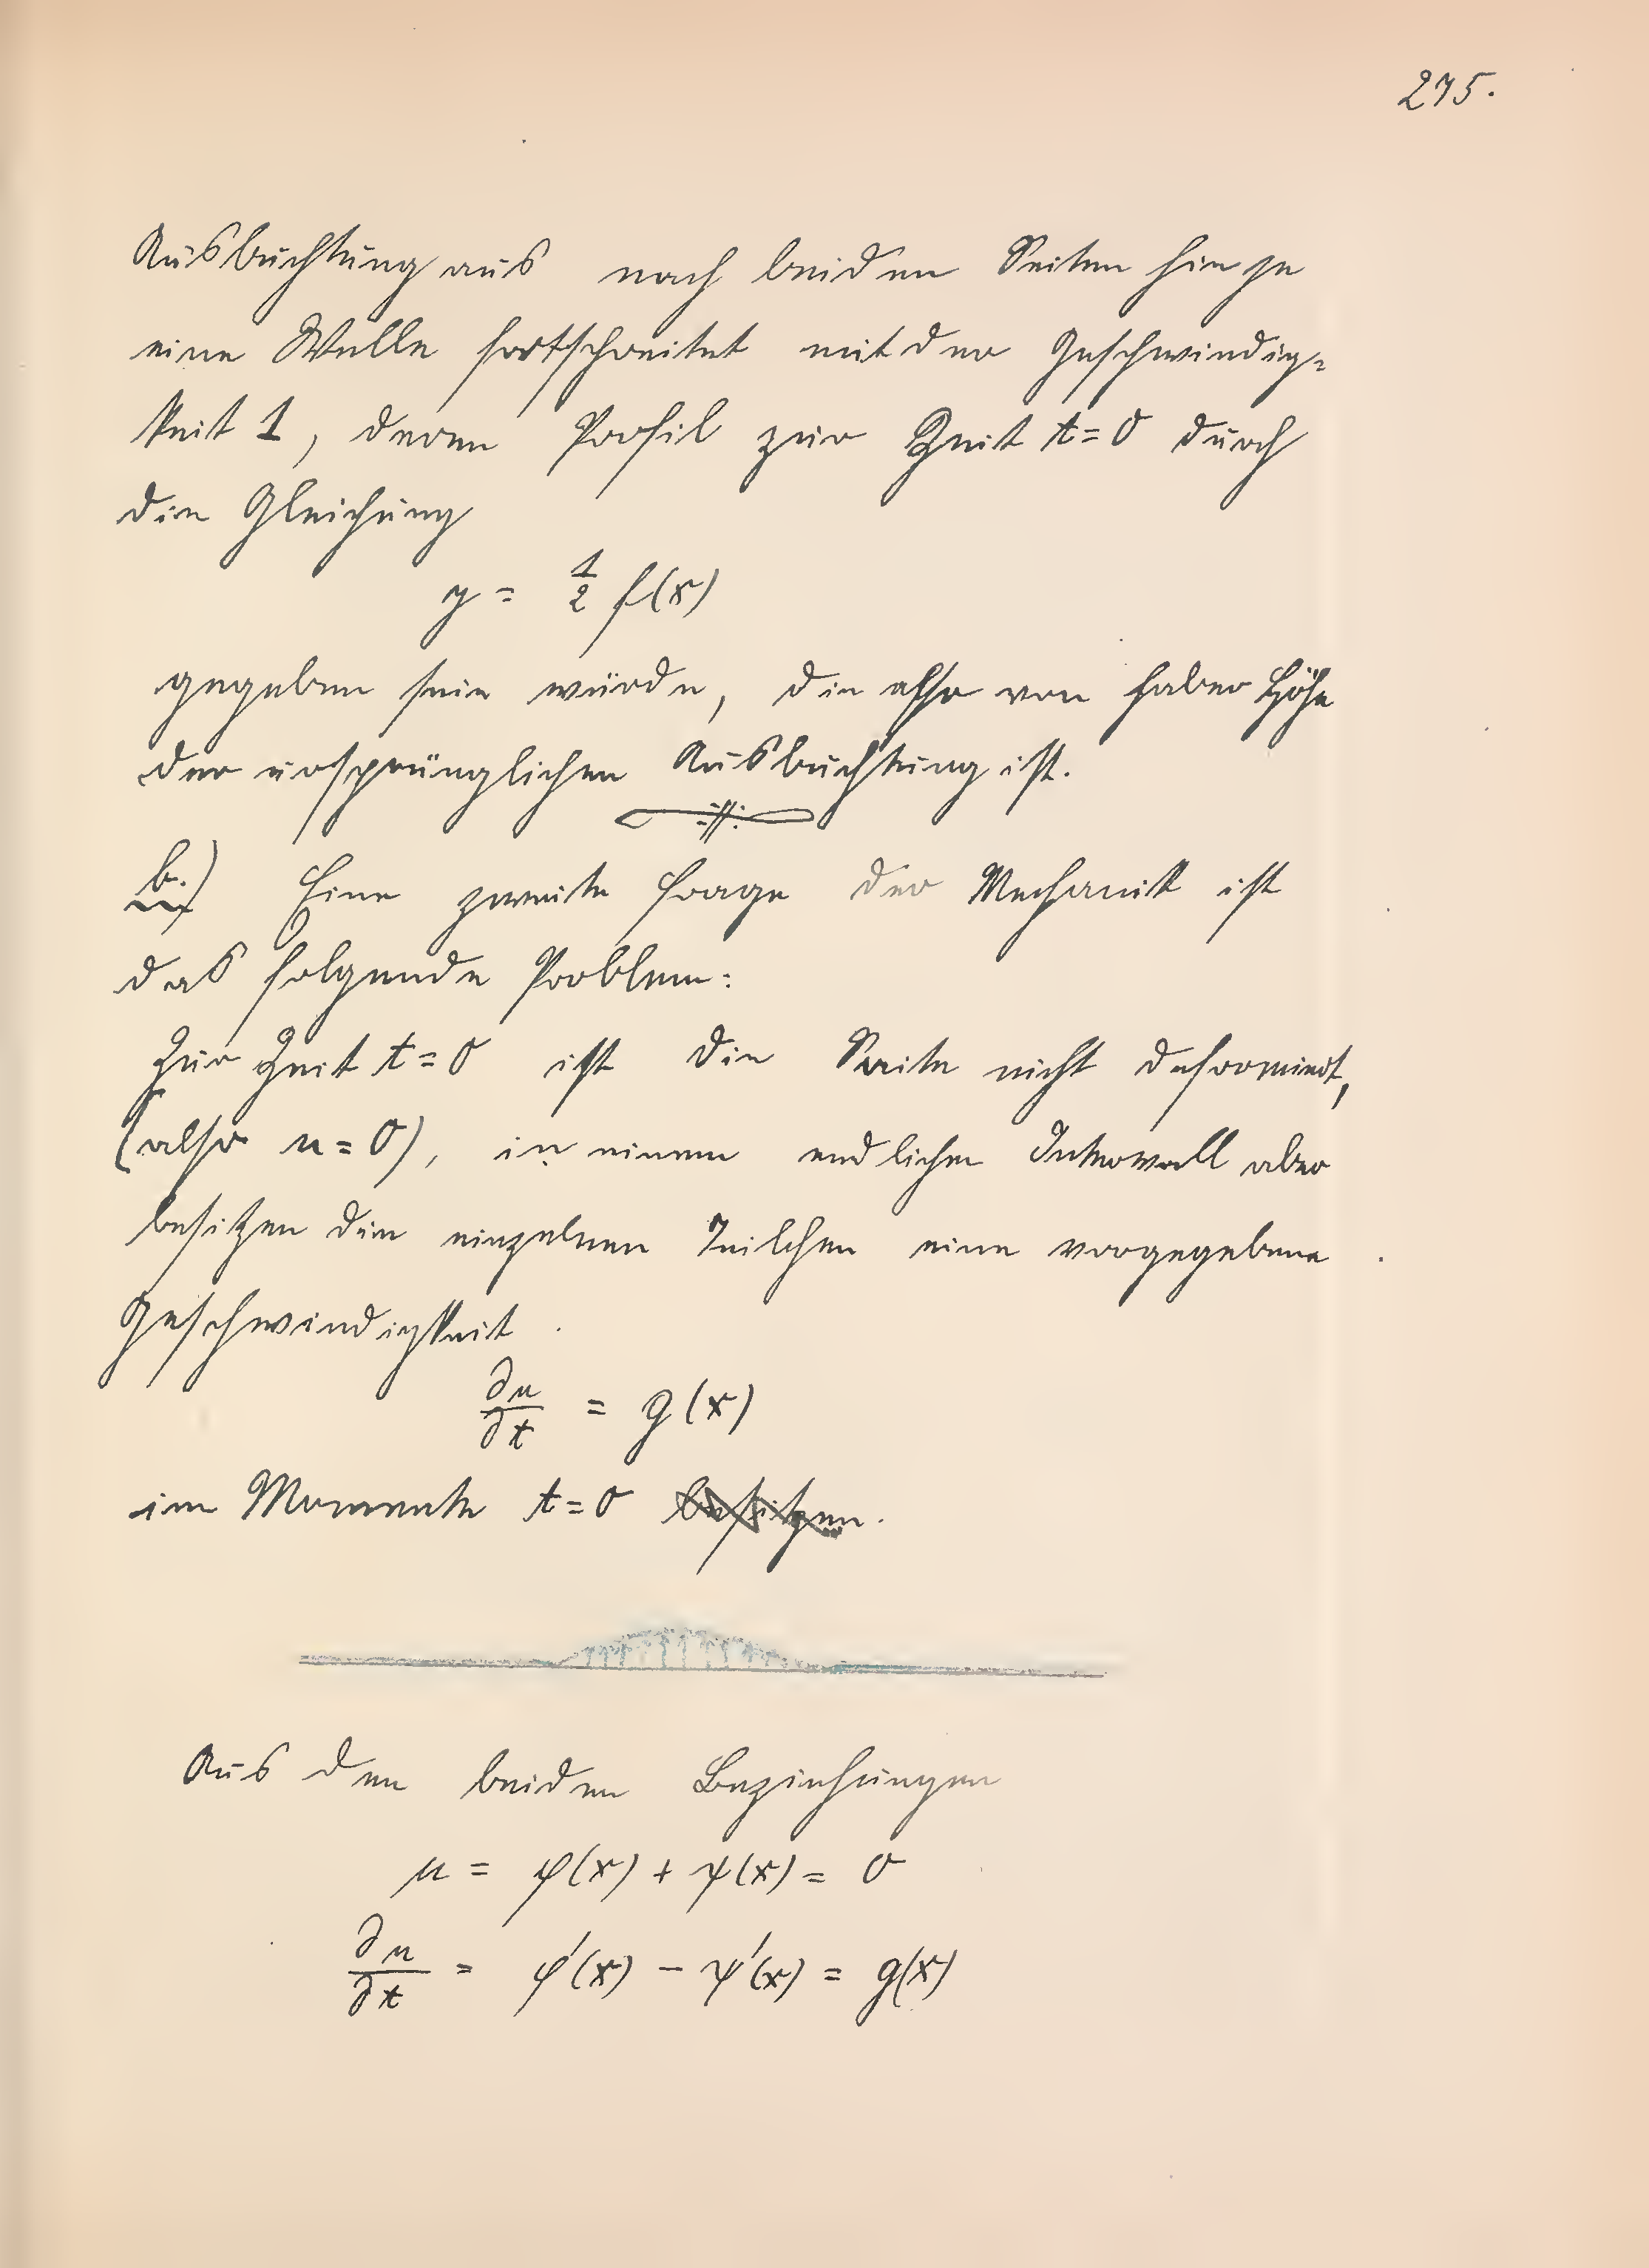 275.
Ausbuchtung aus nach beiden Seiten hin je
eine Welle fortschreitet mit der Geschwindig-
keit 1, deren Profil zur Zeit t=0 durch
die Gleichung
y = 1/2 f(x)
gegeben sein würde, die also von halber Höhe
der ursprünglichen Ausbuchtung ist.
b.) Eine zweite Frage der Mechanik ist
das folgende Problem:
Zur Zeit t=0 ist die Saite nicht deformiert,
(also u=0), in einem endlichen Intervall aber
besitzen die einzelnen Teilchen eine vorgegebene
Geschwindigkeit
∂u/∂t = g(x)
im Momente t=0 besitzen.
Aus den beiden Beziehungen
u = φ(x) + ψ(x) = 0
∂u/∂t = φ'(x) - ψ'(x) = g(x)